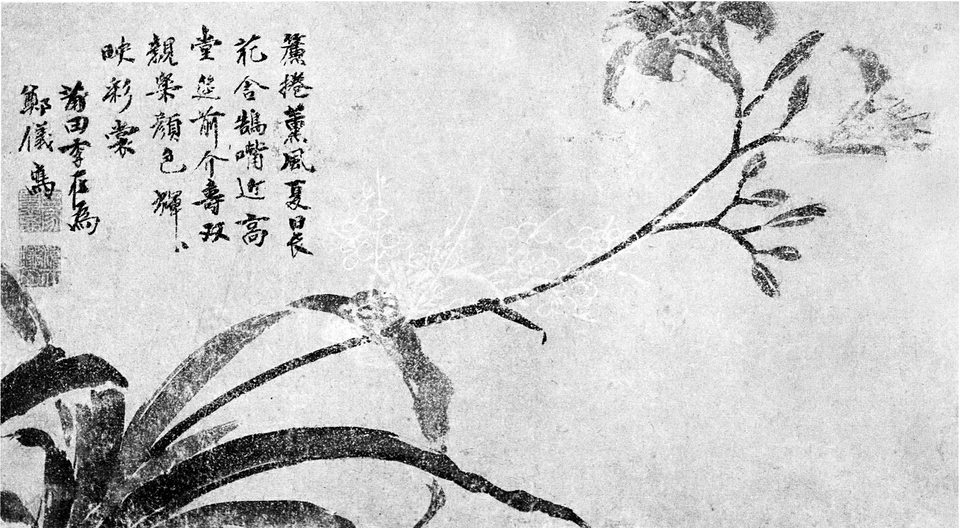 簾捲薰風夏日長
花含鵠嘴近高
堂筵前介壽双
親樂顔色輝〻
映彩裳
莆田李在為
鄭儀寫